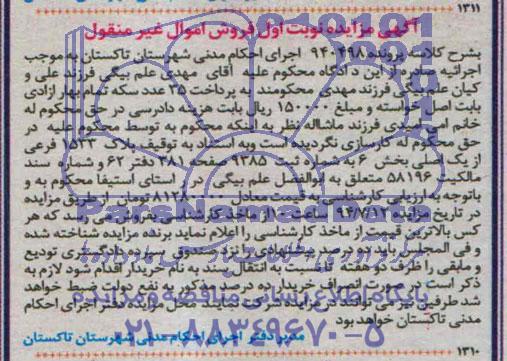 ۱۳۱۱
آگهی مزایده نوبت اول فروش اموال غیر منقول
بشرح کلاسه پرونده ۹۴۰۴۹۸ اجرای احکام مدنی شهرستان تاکستان به موجب
اجرائیه صادره از این دادگاه محکوم علیه آقای مهدی علم بیگی فرزند علی و
کیان علم بیگی فرزند مهدی محکومند به پرداخت ۳۵ عدد سکه تمام بهار ازادی
بابت اصل خواسته و مبلغ ۱۵۰۰۰۰ ریال بابت هزینه دادرسی در حق محکوم له
خانم امیدی فرزند ماشااله نظر به اینکه محکوم به توسط محکوم علیه در
حق محکوم له کارسازی نگردیده است وبه استناد به توقیف پلاک ۱۵۳۳ فرعی
از یک اصلی بخش ۶ به شماره ثبت ۹۳۸۵ صفحه ۳۸۱ دفتر ۶۲ و شماره سند
مالکیت ۵۸۱۹۶ متعلق به ابوالفضل علم بیگی در راستای استیفا محکوم به و
باتوجه به ارزیابی کارشناسی به قیمت معادل تومان از طریق مزایده
در تاریخ مزایده ۹۴/۷/۱۲ ساعت از ماخذ کارشناسی بفروش می رسد که هر
کس بالاترین قیمت از ماخذ کارشناسی را اعلام نماید برنده مزایده شناخته شده
و فی المجلس باید ده درصد بهای را نزد صندوق سپرده دادگستری تودیع
و مابقی را ظرف دو هفته تا نسبت به انتقال سند به نام خریدار اقدام شود لازم به
ذکر است در صورت انصراف خریدار ده درصد مذکور به نفع دولت ضبط خواهد
شد طرفین نیز می توانند در مزایده شرکت نمایند. محل مزایده دفتر اجرای احکام
مدنی تاکستان خواهد بود
مدیر دفتر اجرای احکام مدنی شهرستان تاکستان
۱۳۱۰
پایگاه اطلاع رسانی مناقصه و مزایده
۰۲۱-۸۸۳۴۹۶۷۰-۵